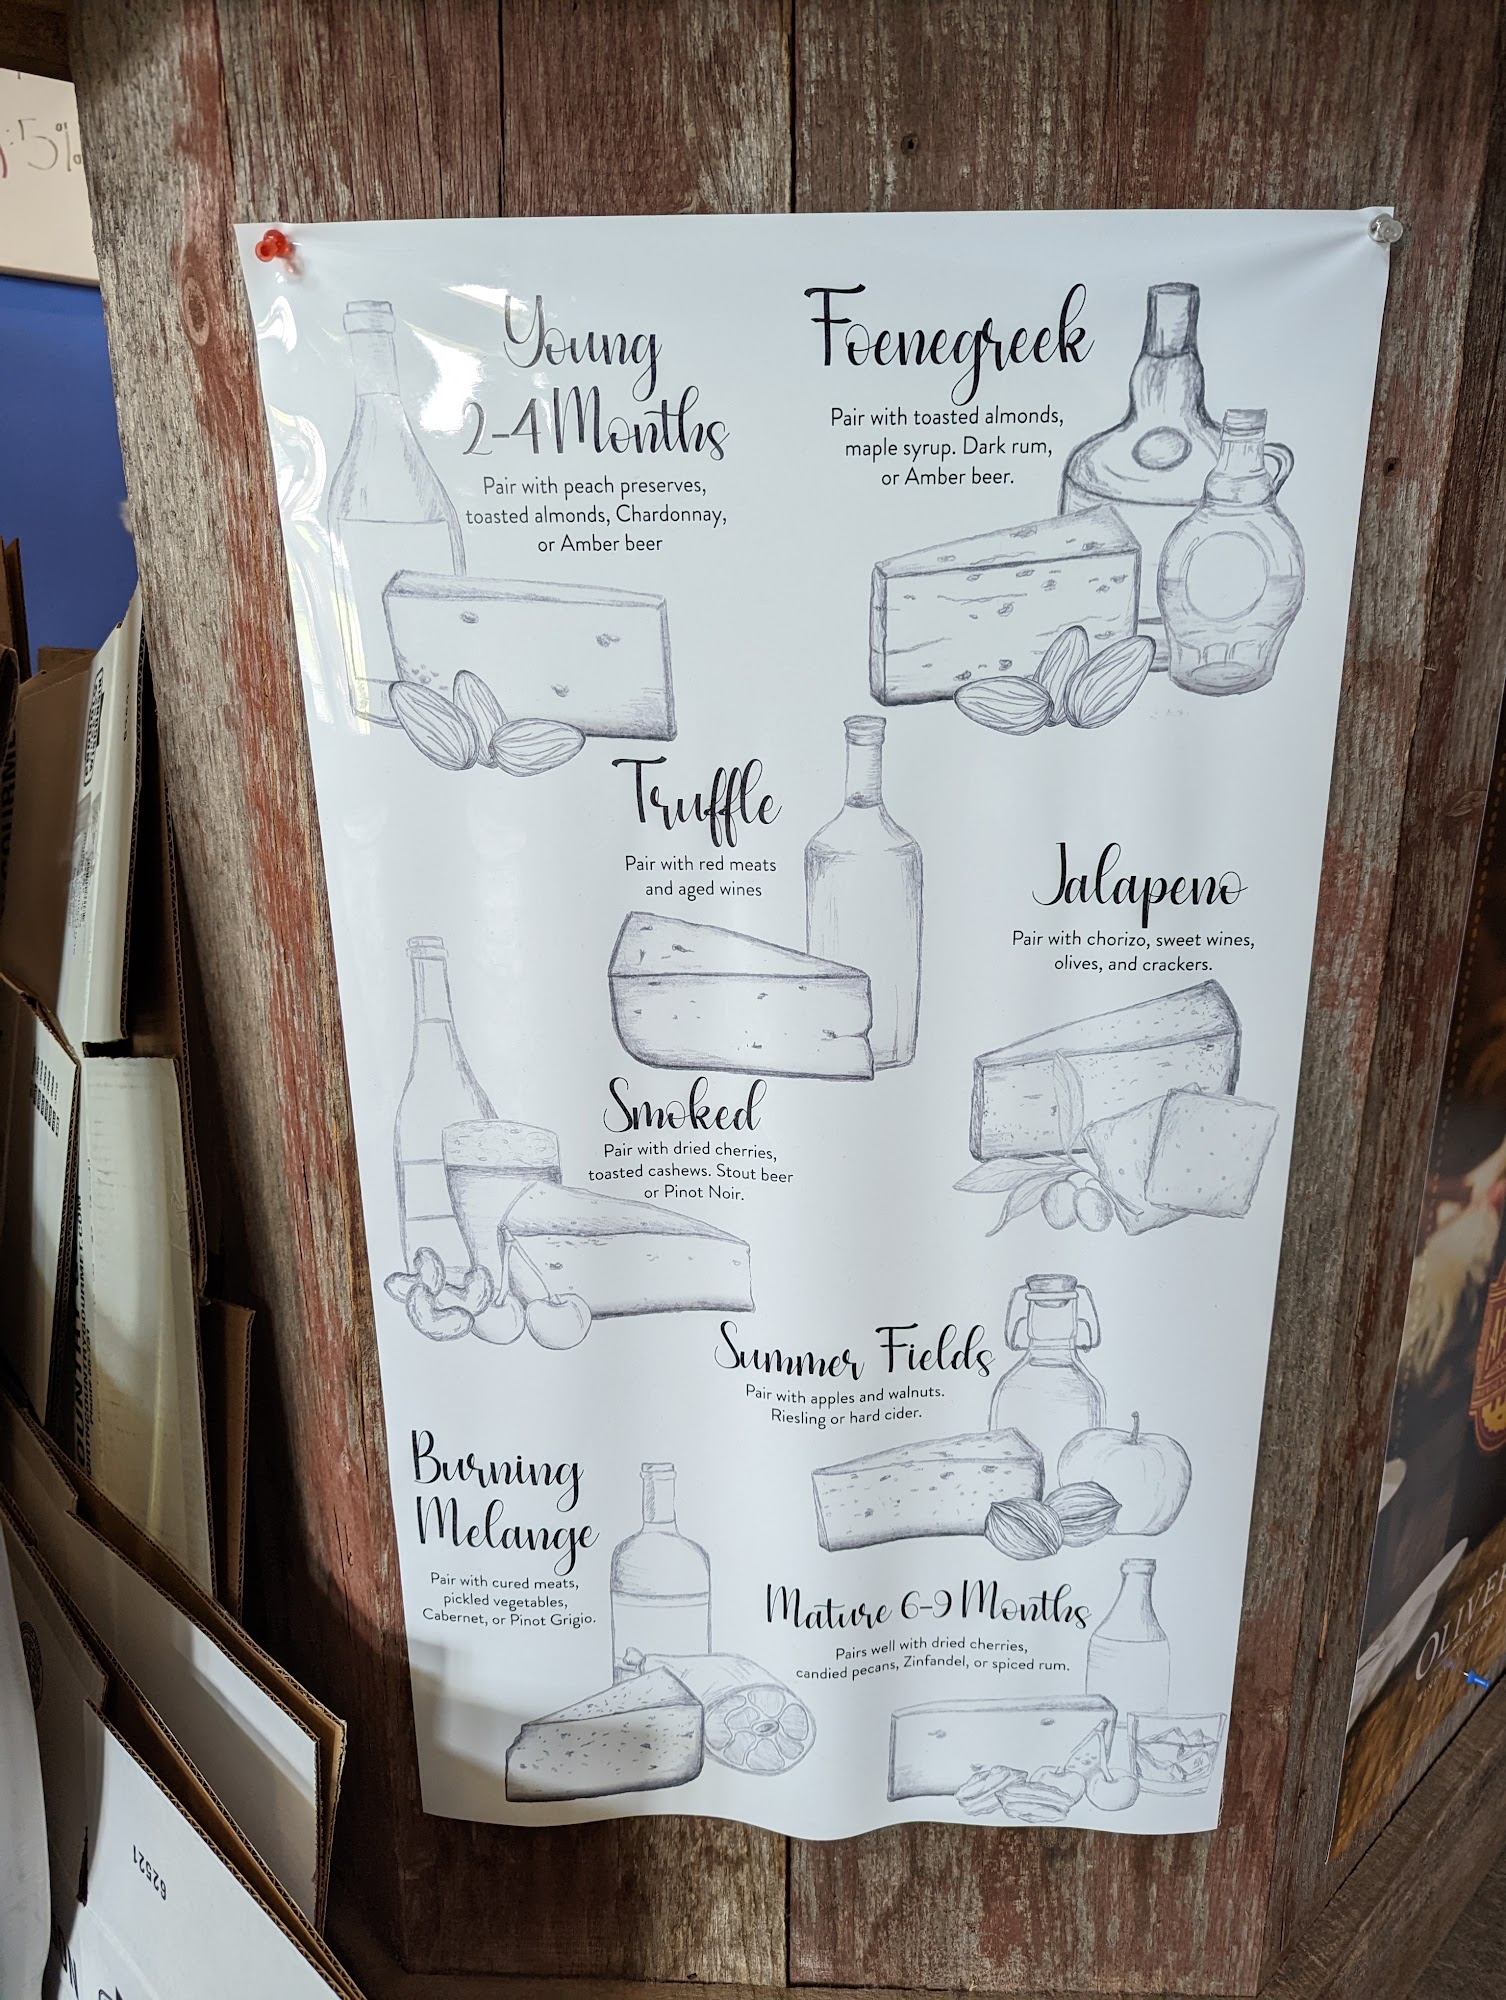 5%
Young
2-4 Months
Pair with peach preserves,
toasted almonds, Chardonnay,
or Amber beer
Foenegreek
Pair with toasted almonds,
maple syrup. Dark rum,
or Amber beer.
Truffle
Pair with red meats
and aged wines
Jalapeno
Pair with chorizo, sweet wines,
olives, and crackers.
Smoked
Pair with dried cherries,
toasted cashews. Stout beer
or Pinot Noir.
Summer Fields
Pair with apples and walnuts.
Riesling or hard cider.
Burning
Melange
Pair with cured meats,
pickled vegetables,
Cabernet, or Pinot Grigio.
Mature 6-9 Months
Pairs well with dried cherries,
candied pecans, Zinfandel, or spiced rum.
62521